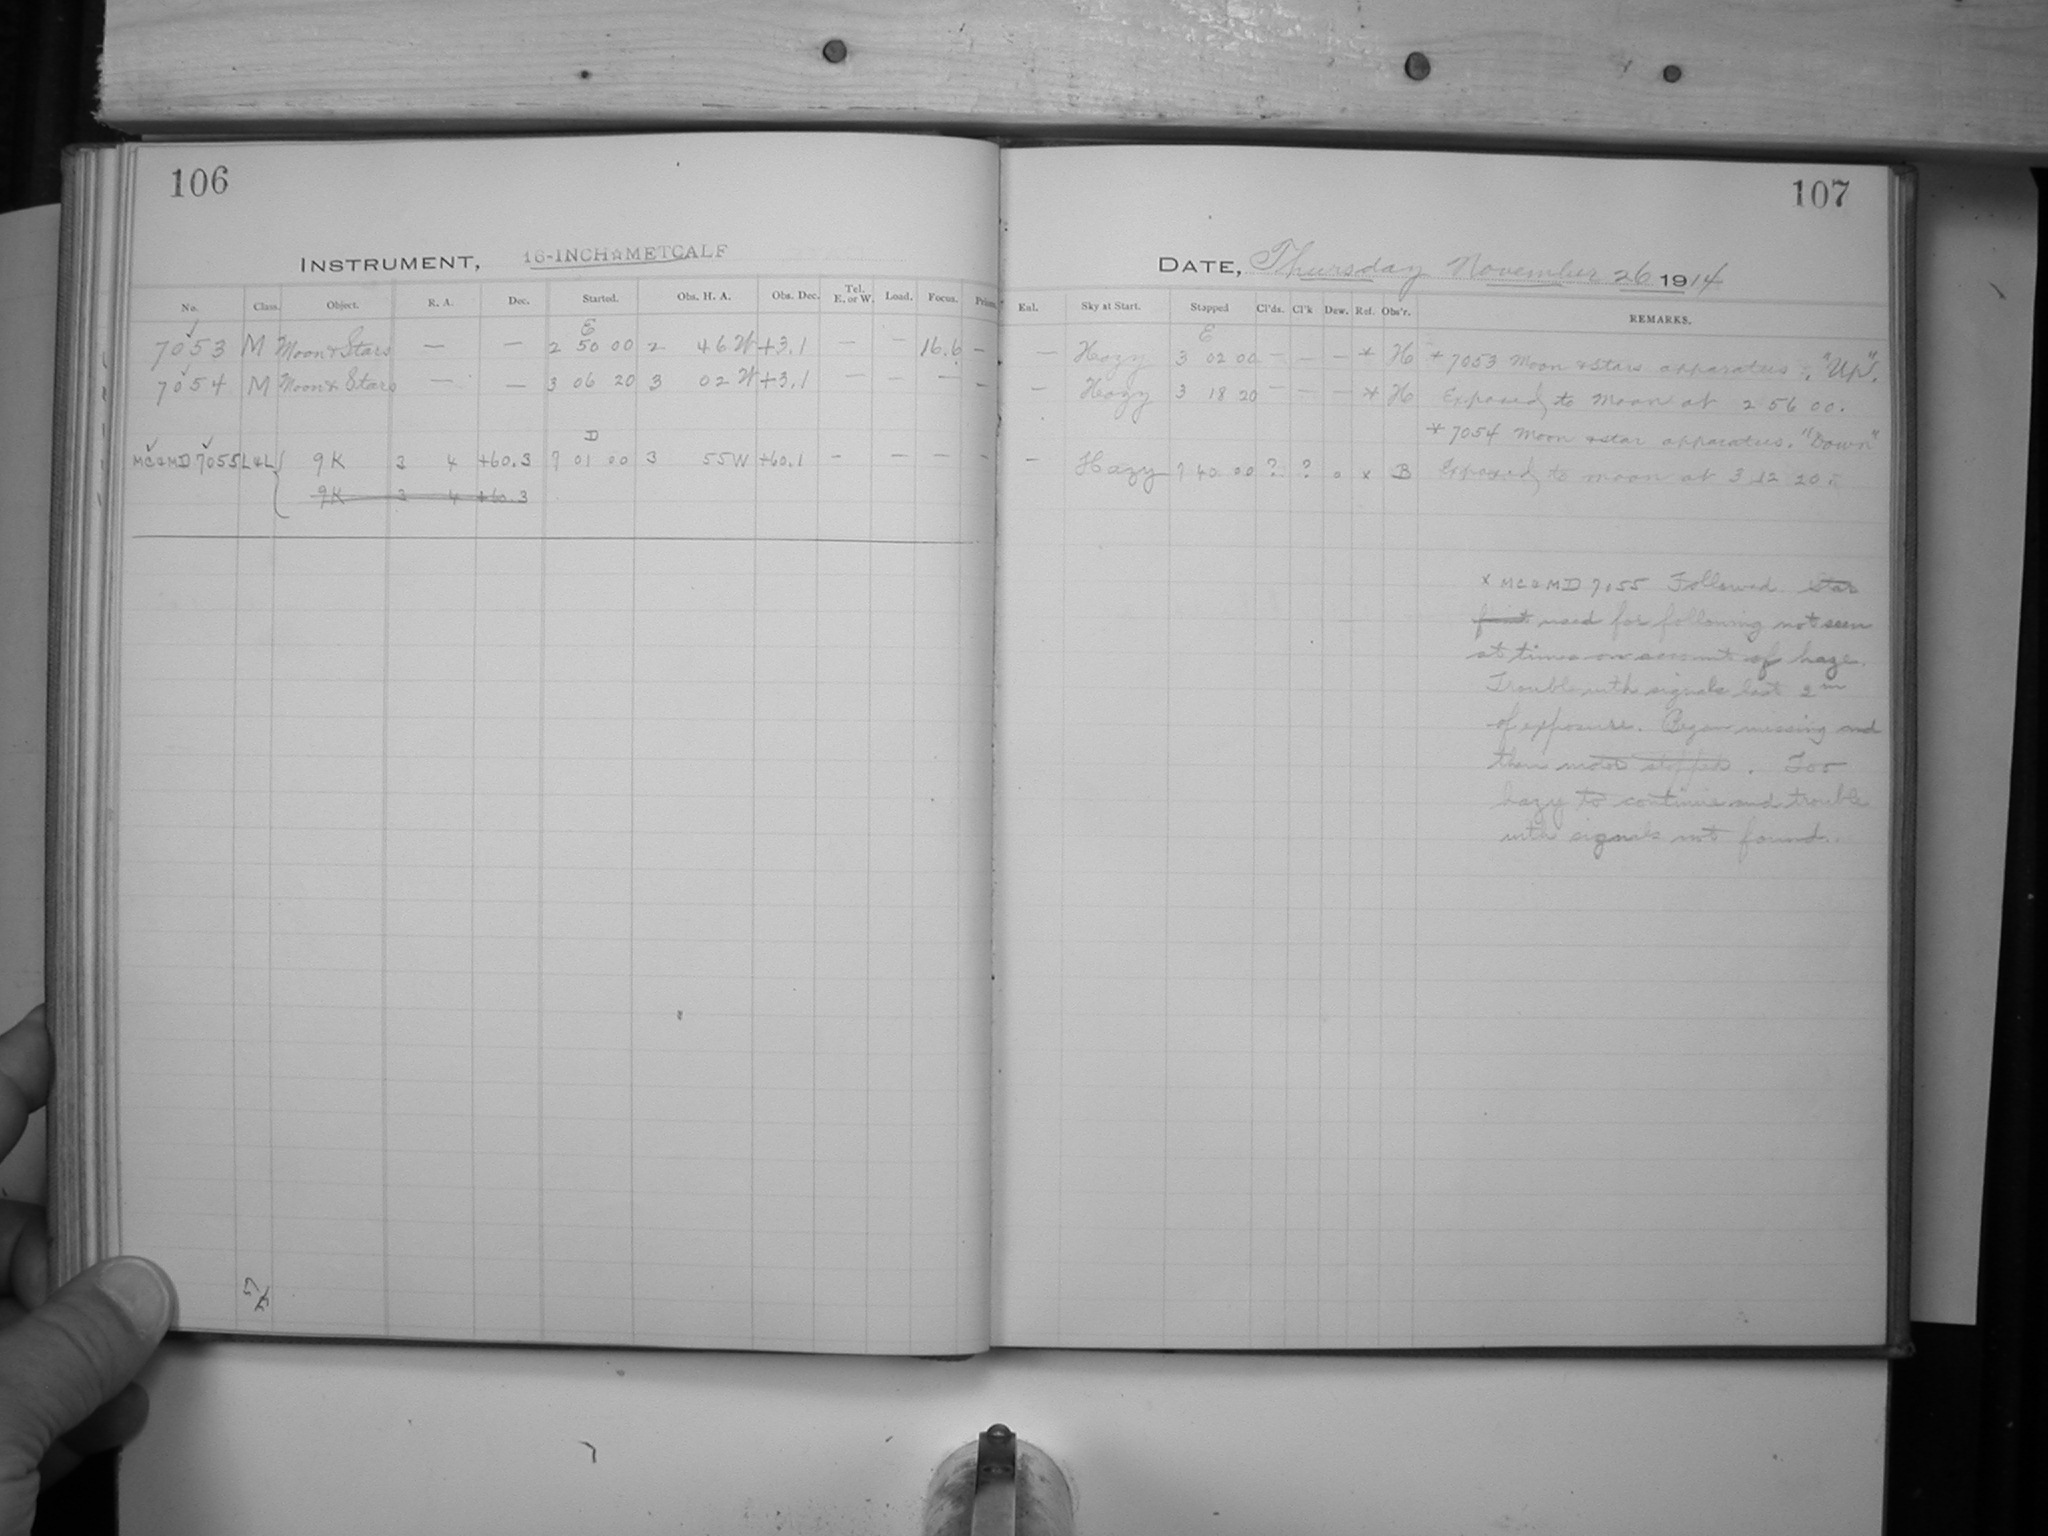 106
INSTRUMENT, 16-INCH☆METCALF
No. Class. Object. R. A. Dec. Started. Obs. H. A. Obs. Dec. Tel. E. or W. Load. Focus. Prism.
E
7053 M Moon & Stars — — 2 50 00 2 46 W +3.1 — — 16.6 —
7054 M Moon & Stars — — 3 06 20 3 02 W +3.1 — — — —
D
MC&MD 7055 L&L { 9K 3 4 +60.3 7 01 00 3 55W +60.1 — — — —
9K 3 4 +60.3
107
DATE, Thursday November 26 1914
Eul. Sky at Start. Stopped Cl'ds. Cl'k Dew. Ref. Obs'r. REMARKS.
E
— Hazy 3 02 00 — — — * H * 7053 Moon & Stars apparatus, "Up".
— Hazy 3 18 20 — — — * H Exposed to Moon at 2 56 00.
* 7054 Moon & star apparatus. "Down"
— Hazy 7 40 00 ? ? 0 x B Exposed to moon at 3 12 20.
x MC&MD 7055 Followed. Star
faint used for following not seen
at times on account of haze.
Trouble with signals last 2m
of exposure. Began missing and
then motor stopped. Too
hazy to continue and trouble
with signals not found.